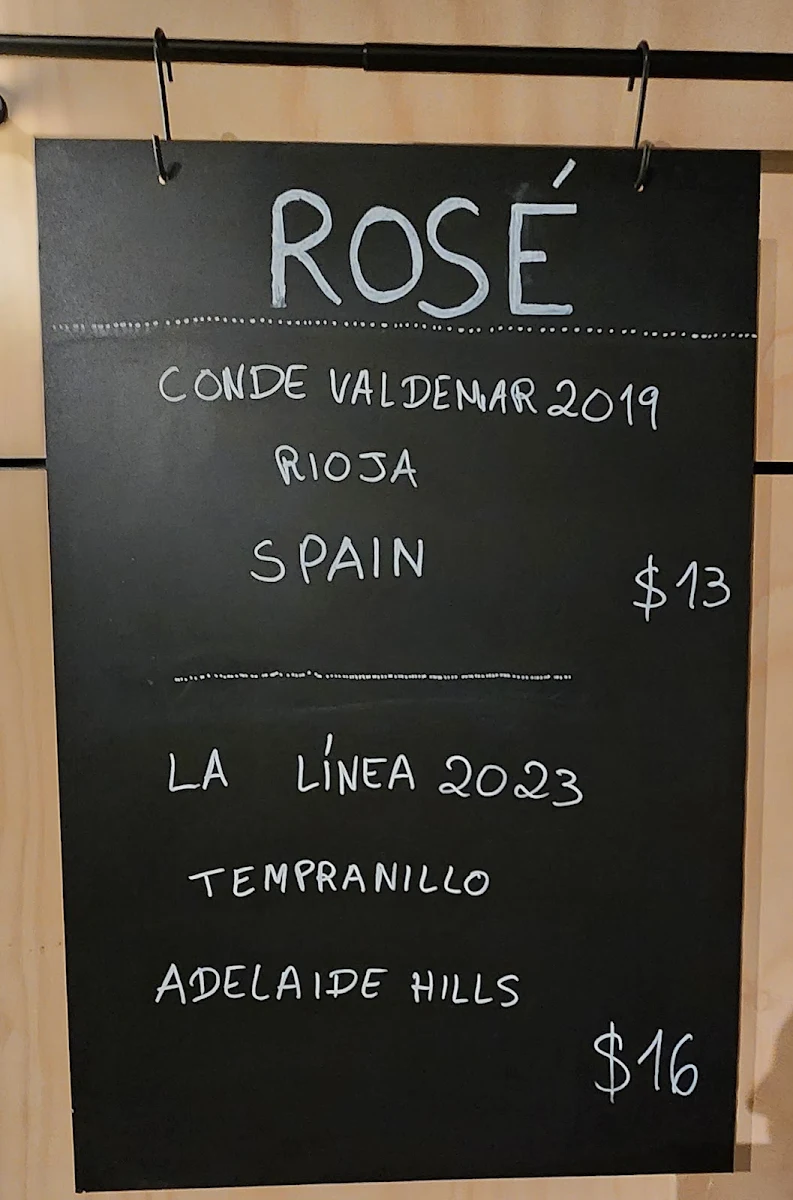 ROSÉ
CONDE VALDEMAR 2019
RIOJA
SPAIN
$13
LA LÍNEA 2023
TEMPRANILLO
ADELAIDE HILLS
$16